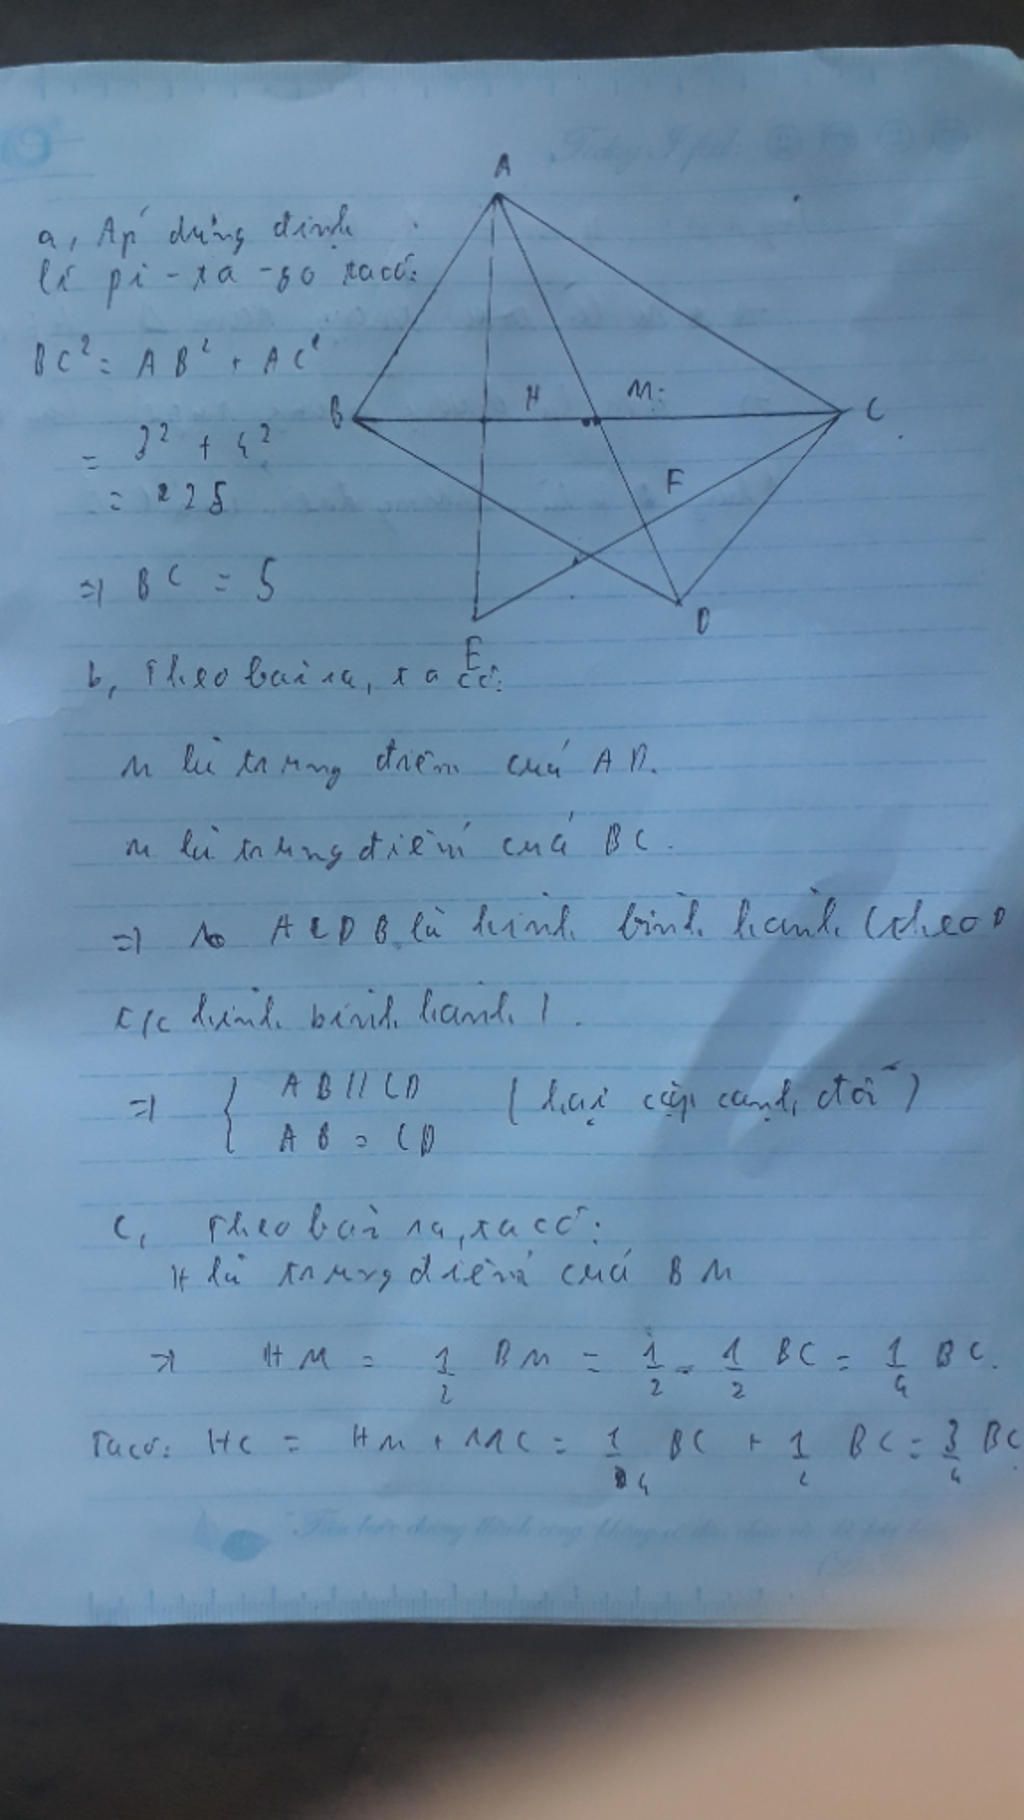 Today I feel:
A
a, Áp dụng định
lí pi-ta-go ta có:
BC² = AB² + AC²
= 3² + 4²
= 25
⇒ BC = 5
B
H
M
C
F
D
E
b, Theo bài ra, ta có:
M là trung điểm của AD.
M là trung điểm của BC.
⇒ ACDB là hình bình hành (theo
t/c hình bình hành).
⇒ { AB // CD
AB = CD (hai cặp cạnh đối)
c, Theo bài ra, ta có:
H là trung điểm của BM
⇒ HM = 1/2 BM = 1/2 . 1/2 BC = 1/4 BC.
Ta có: HC = HM + MC = 1/4 BC + 1/2 BC = 3/4 BC